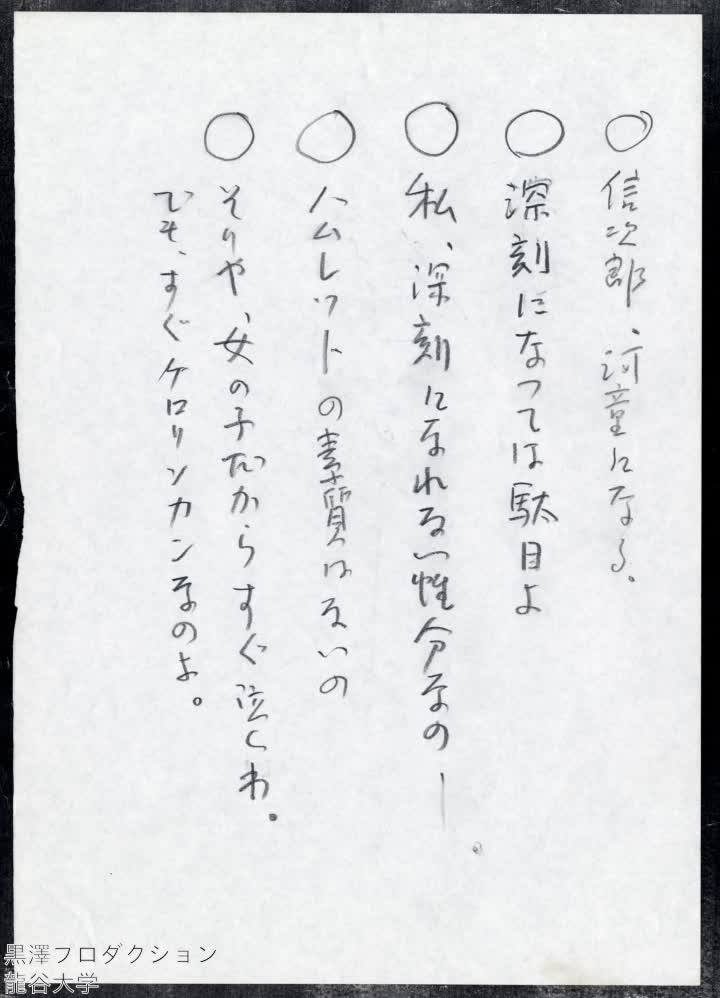 ○ 信次郎、河童になる。
○ 深刻になっては駄目よ
○ 私、深刻になれない性分なの―。
○ ハムレットの素質はないの
○ そりや、女の子だからすぐ泣くわ。
でも、すぐケロリンカンなのよ。
黒澤プロダクション
龍谷大学